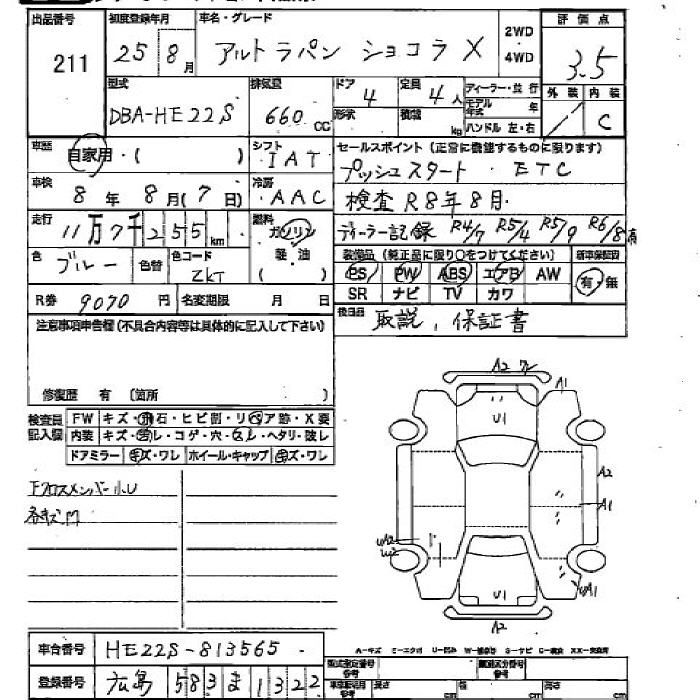 出品番号 初度登録年月 車名・グレード 2WD 評価点
211 25 8月 アルトラパン ショコラX ・4WD 3.5
型式 排気量 ドア 定員 ディーラー・並行 外装 内装
DBA-HE22S 660 cc 4 4人 モデル年式 年 C
形状 積載 kg ハンドル 左・右
車歴 自家用・( ) シフト IAT セールスポイント(正常に機能するものに限ります)
プッシュスタート・ETC
車検 8年8月(7日) 冷房 AAC 検査 R8年8月
走行 11万7千255km 燃料 ガソリン 軽・油 ( ) ディーラー記録 R4/7 R5/4 R5/9 R6/8
色 ブルー 色替 色コード ZKT 装備品(純正品に限り○をつけてください) 新車保証書
PS PW ABS エアB AW 有・無
SR ナビ TV カワ
R券 9070円 名変期限 月 日 後日品 取説, 保証書
注意事項申告欄(不具合内容等は具体的に記入して下さい)
修復歴 有 (箇所
検査員記入欄 FW キズ・飛石・ヒビ割・リペア跡・X要
内装 キズ・汚レ・コゲ・穴・スレ・ヘタリ・破レ
ドアミラー キズ・ワレ ホイール・キャップ キズ・ワレ
FクロスメンバーU
A2 ワレ
A1
U1
A2
A1
UA2
W2
UA1
U1
A2
A-キズ U-凹み
車台番号 HE22S-813565
登録番号 広島 583 ま 1322
型式指定番号 参考 類別区分番号 参考
長さ cm 幅 cm 高さ cm